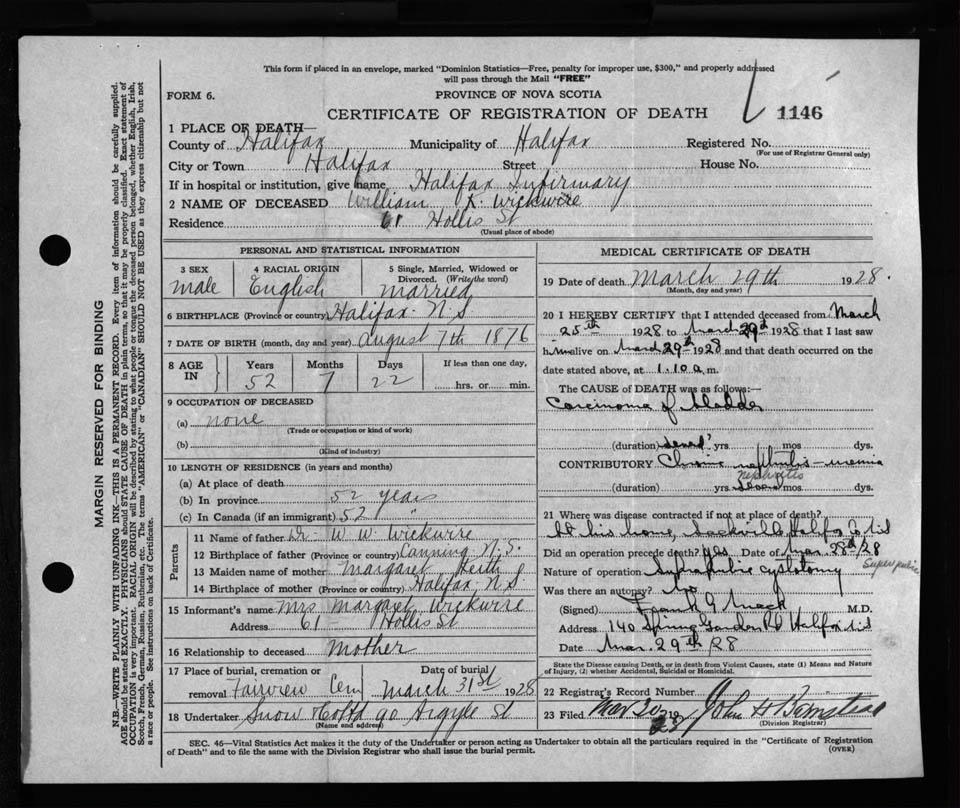 This form if placed in an envelope, marked "Dominion Statistics—Free, penalty for improper use, $300," and properly addressed
will pass through the Mail "FREE"
FORM 6.
PROVINCE OF NOVA SCOTIA
CERTIFICATE OF REGISTRATION OF DEATH
1146
1 PLACE OF DEATH—
County of Halifax Municipality of Halifax Registered No.
(For use of Registrar General only)
City or Town Halifax Street House No.
If in hospital or institution, give name Halifax Infirmary
2 NAME OF DECEASED William K. Wickwire
Residence 61 Hollis St
(Usual place of abode)
PERSONAL AND STATISTICAL INFORMATION
3 SEX 4 RACIAL ORIGIN 5 Single, Married, Widowed or
Divorced. (Write the word)
male English married
6 BIRTHPLACE (Province or country) Halifax N.S.
7 DATE OF BIRTH (month, day and year) August 7th 1876
8 AGE IN Years Months Days If less than one day,
52 7 22 hrs. or min.
9 OCCUPATION OF DECEASED
(a) none
(Trade or occupation or kind of work)
(b)
(Kind of industry)
10 LENGTH OF RESIDENCE (in years and months)
(a) At place of death
(b) In province 52 years
(c) In Canada (if an immigrant) 52 "
Parents
11 Name of father Dr. W. W. Wickwire
12 Birthplace of father (Province or country) Canning N.S.
13 Maiden name of mother Margaret Keith
14 Birthplace of mother (Province or country) Halifax N.S.
15 Informant's name Mrs Margaret Wickwire
Address 61 Hollis St
16 Relationship to deceased Mother
17 Place of burial, cremation or Date of burial
removal Fairview Cem March 31st 1928
18 Undertaker Snow & Co Ltd 90 Argyle St
(Name and address)
MEDICAL CERTIFICATE OF DEATH
19 Date of death March 29th 1928.
(Month, day and year)
20 I HEREBY CERTIFY that I attended deceased from March
25th 1928 to March 29th 1928 that I last saw
him alive on March 29th 1928 and that death occurred on the
date stated above, at 1.10 a.m.
The CAUSE OF DEATH was as follows:—
Carcinoma of bladder
(duration) yrs. mos dys.
CONTRIBUTORY Chronic nephritis - uremia
nephritis
(duration) mos. dys.
21 Where was disease contracted if not at place of death?
At his home, Sackville, Halifax Co N.S
Did an operation precede death? yes Date of Mar. 28th/28
Nature of operation Suprapubic cystotomy
Super pubic
Was there an autopsy? No
(Signed) Frank G Mack M.D.
Address 140 Spring Garden Rd Halifax N.S
Date Mar. 29th/28
State the Disease causing Death, or in death from Violent Causes, state (1) Means and Nature
of Injury, (2) whether Accidental, Suicidal or Homicidal.
22 Registrar's Record Number
23 Filed Mar 30 1928 John H Barnstead
(Division Registrar)
SEC. 46—Vital Statistics Act makes it the duty of the Undertaker or person acting as Undertaker to obtain all the particulars required in the "Certificate of Registration
of Death" and to file the same with the Division Registrar who shall issue the burial permit.
(OVER)
MARGIN RESERVED FOR BINDING
N.B.—WRITE PLAINLY WITH UNFADING INK—THIS IS A PERMANENT RECORD. Every item of information should be carefully supplied.
AGE should be stated EXACTLY. PHYSICIANS should STATE CAUSE OF DEATH in plain terms, so that it may be properly classified. Exact statement of
OCCUPATION is very important. RACIAL ORIGIN will be described by stating to what people or tongue the deceased person belonged, whether English, Irish,
Scotch, French, German, Russian, Ruthenian, etc. The terms "AMERICAN" or "CANADIAN" SHOULD NOT BE USED as they express citizenship but not
a race or people. See instructions on back of Certificate.